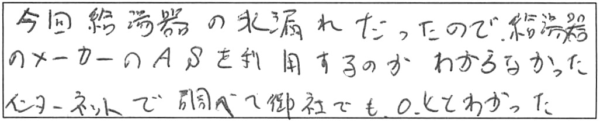 今回給湯器の水漏れだったので、給湯器
のメーカーのASを利用するのかわからなかった
インターネットで調べて御社でも、O.Kとわかった